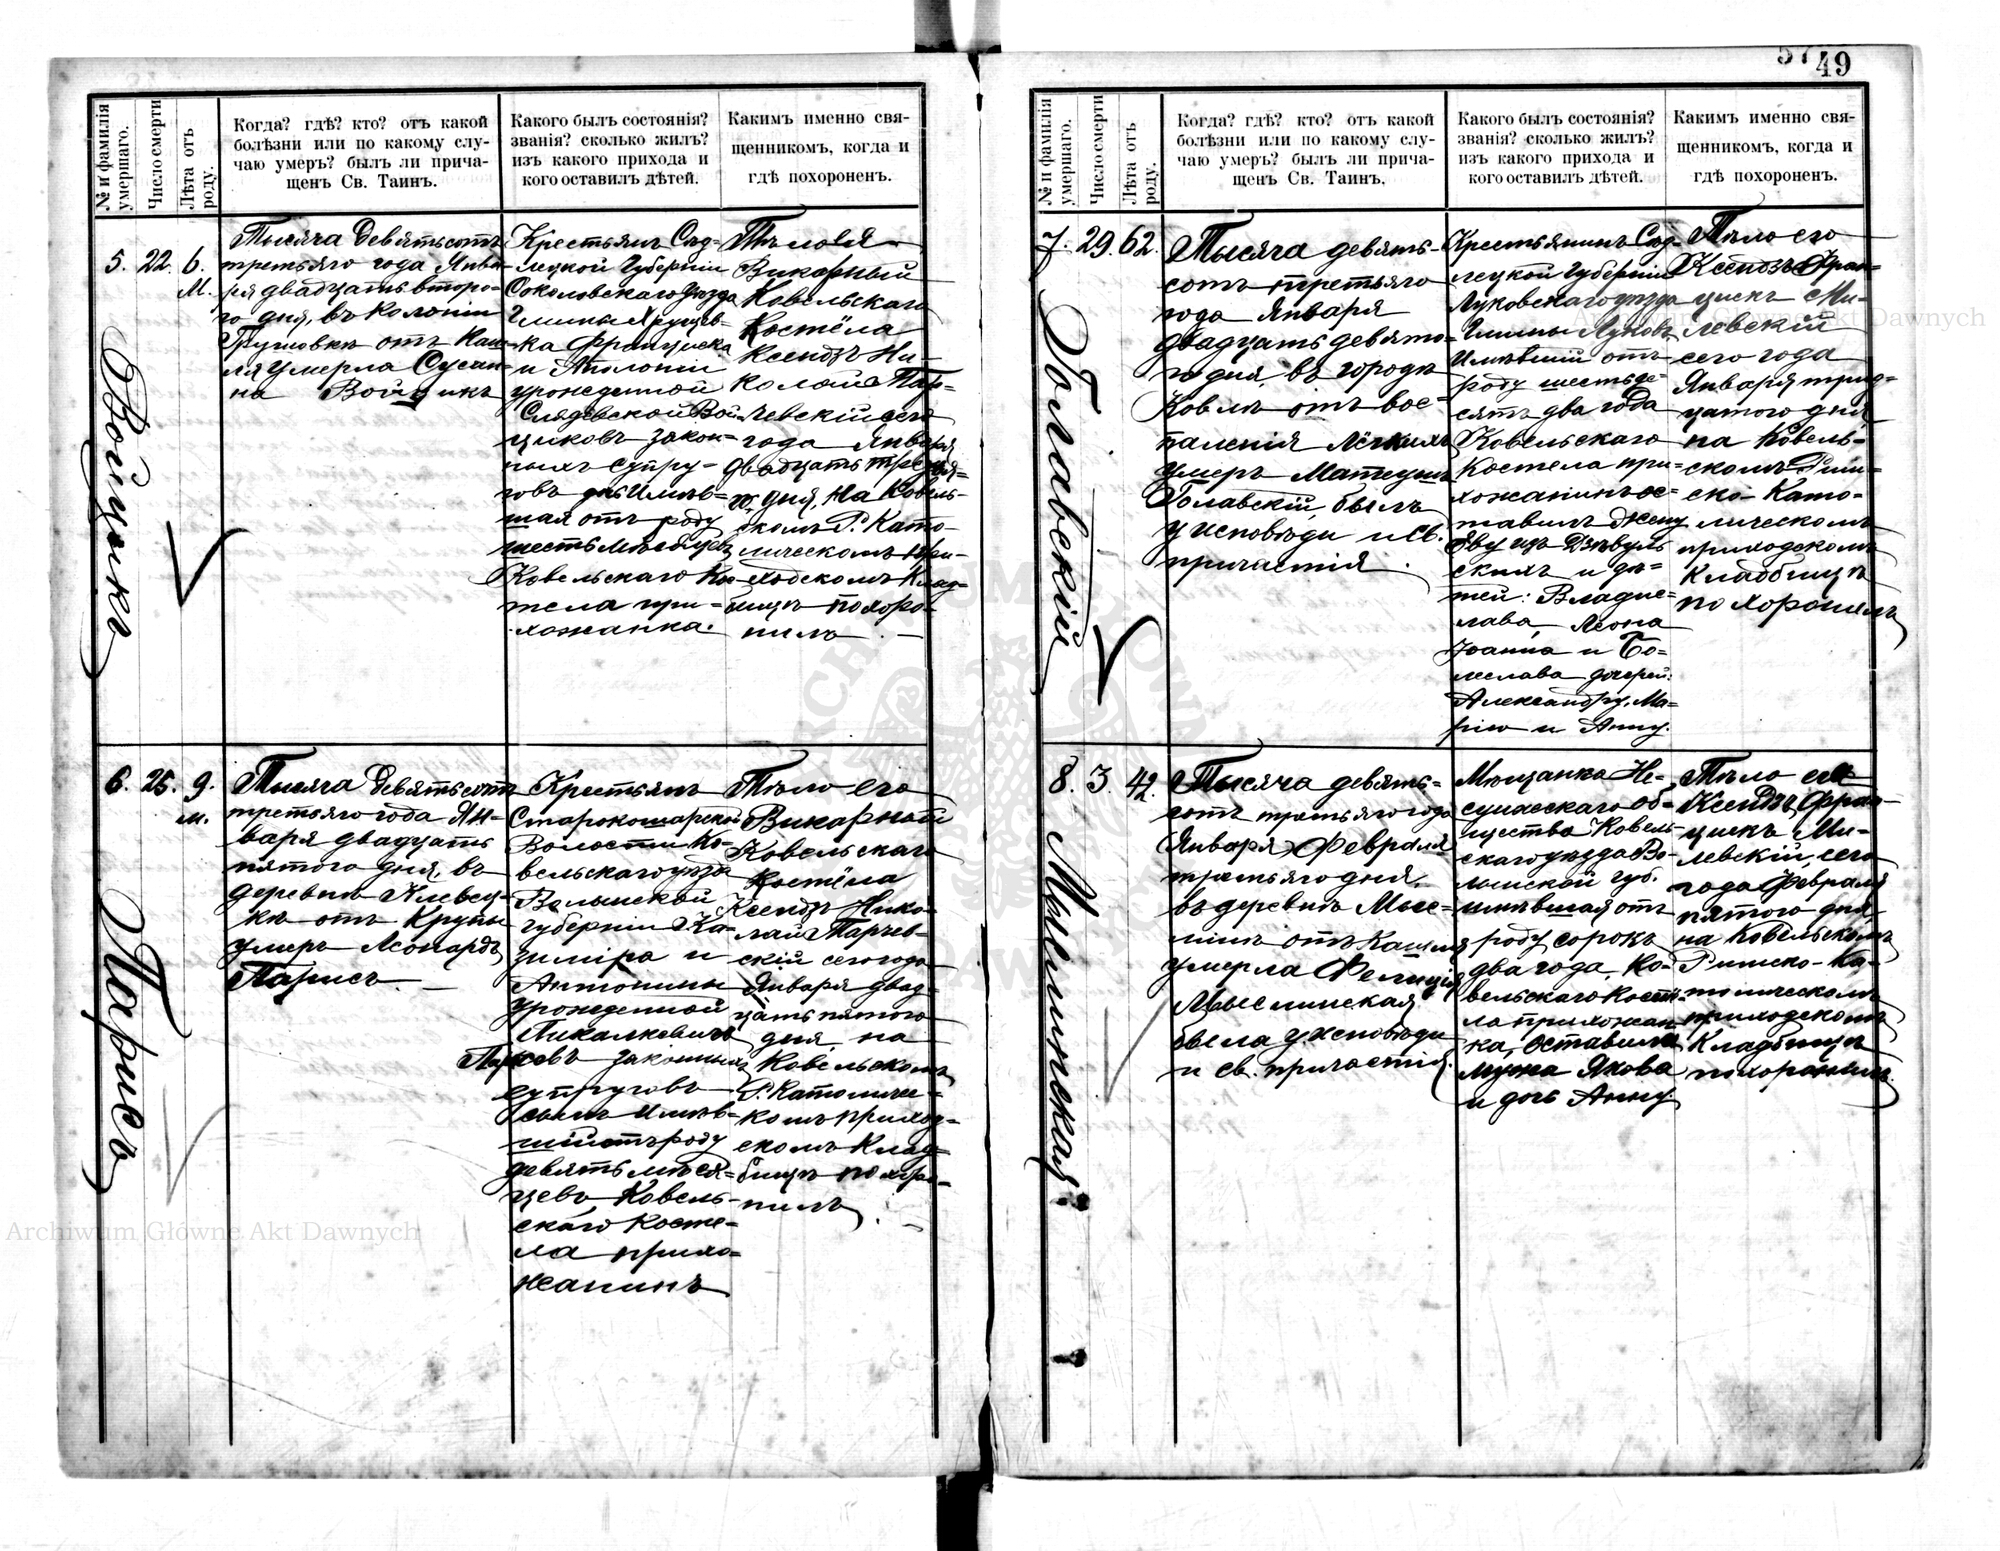 № и фамилія умершаго.
Число смерти
Лѣта отъ роду.
Когда? гдѣ? кто? отъ какой
болѣзни или по какому слу-
чаю умеръ? былъ ли прича-
щенъ Св. Таинъ.
Какого былъ состоянія?
званія? сколько жилъ?
изъ какого прихода и
кого оставилъ дѣтей.
Какимъ именно свя-
щенникомъ, когда и
гдѣ похороненъ.
5.
Войцикъ
22.
6.
М.
Тысяча Девятьсотъ
третьяго года Янва-
ря двадцать второ-
го дня, въ Колоніи
отъ Каш-
ля умерла Сусан-
на Войцикъ
Крестьянъ Сѣд-
лецкой Губерніи
Соколовскаго уѣзда
Гмины
Франциска
и Аполоніи
урожденной
Вой-
циковъ закон-
ныхъ супру-
говъ дочь Имѣв-
шая отъ роду
шесть мѣсяцевъ
Ковельскаго Кос-
тела при-
хожанка.
Тѣло ея
Викарный
Ковельскаго
Костёла
Ксендзъ Ни-
колай Тар-
чевскій сего
года Января
двадцать третья-
го дня, на Ковель-
скомъ Р. Като-
лическомъ при-
ходскомъ Клад-
бищѣ похоро-
нилъ. —
6.
Парисъ
25.
9.
м.
Тысяча Девятьсотъ
третьяго года Ян-
варя двадцать
пятого дня, въ
деревнѣ
отъ Крупы
умеръ Леонардъ
Парисъ. —
Крестьянъ
Старокошарской
Волости Ко-
вельскаго уѣзда
Волынской
губерніи Ка-
зиміра и
Антонины
урожденной
Парисовъ законныхъ
супруговъ
сынъ Имѣв-
шій отъ роду
девять мѣся-
цевъ Ковель-
скаго Косте-
ла прихо-
жанинъ
Тѣло его
Викарный
Ковельскаго
Костёла
Ксендзъ Нико-
лай Тарчев-
скій сего года
Января двад-
цать пятого
дня на
Ковельскомъ
Р. Католичес-
комъ приход-
скомъ Клад-
бищѣ похоро-
нилъ. —
49
№ и фамилія умершаго.
Число смерти
Лѣта отъ роду.
Когда? гдѣ? кто? отъ какой
болѣзни или по какому слу-
чаю умеръ? былъ ли прича-
щенъ Св. Таинъ.
Какого былъ состоянія?
званія? сколько жилъ?
изъ какого прихода и
кого оставилъ дѣтей.
Какимъ именно свя-
щенникомъ, когда и
гдѣ похороненъ.
7.
Голавскій
29.
62.
Тысяча девять-
сотъ третьяго
года Января
двадцать девято-
го дня, въ городѣ
Ковлѣ отъ вос-
паленія лёгкихъ
умеръ Матеушъ
Голавскій, былъ
у исповѣди и св.
причастія.
Крестьянинъ Сѣд-
лецкой губерніи
Луковскаго уѣзда
Гмины Луковъ
Имѣвшій отъ
роду шестьде-
сятъ два года
Ковельскаго
Костела при-
хожанинъ ос-
тавилъ жену
Еву изъ
и дѣ-
тей: Владис-
лава, Леона
Іоанна и Бо-
леслава дочерей:
Александру, Ма-
рію и Анну.
Тѣло его
Ксендзъ Фран-
цискъ Ми-
левскій
сего года
Января трид-
цатого дня
на Ковель-
скомъ Рим-
ско-Като-
лическомъ
приходскомъ
Кладбищѣ
похоронилъ
8.
Мыслинская
3.
42.
Тысяча девять-
сотъ третьяго года
Января Февраля
третьяго дня,
въ деревнѣ Мыс-
линѣ отъ Кашля
умерла Фелиція
Мыслинская
была у исповѣди
и св. причастія.
Мѣщанка Не-
сухоескаго об-
щества Ковель-
скаго уѣзда Во-
лынской губ.
имѣвшая отъ
роду сорокъ
два года, Ко-
вельскаго косте-
ла прихожан-
ка, оставила
мужа Якова
и дочь Анну
Тѣло ея
Ксендзъ Фран-
цискъ Ми-
левскій, сего
года Февраля
пятого дня
на Ковельскомъ
Римско-Ка-
толическомъ
приходскомъ
Кладбищѣ
похоронилъ.
Archiwum Główne Akt Dawnych
Archiwum Główne Akt Dawnych